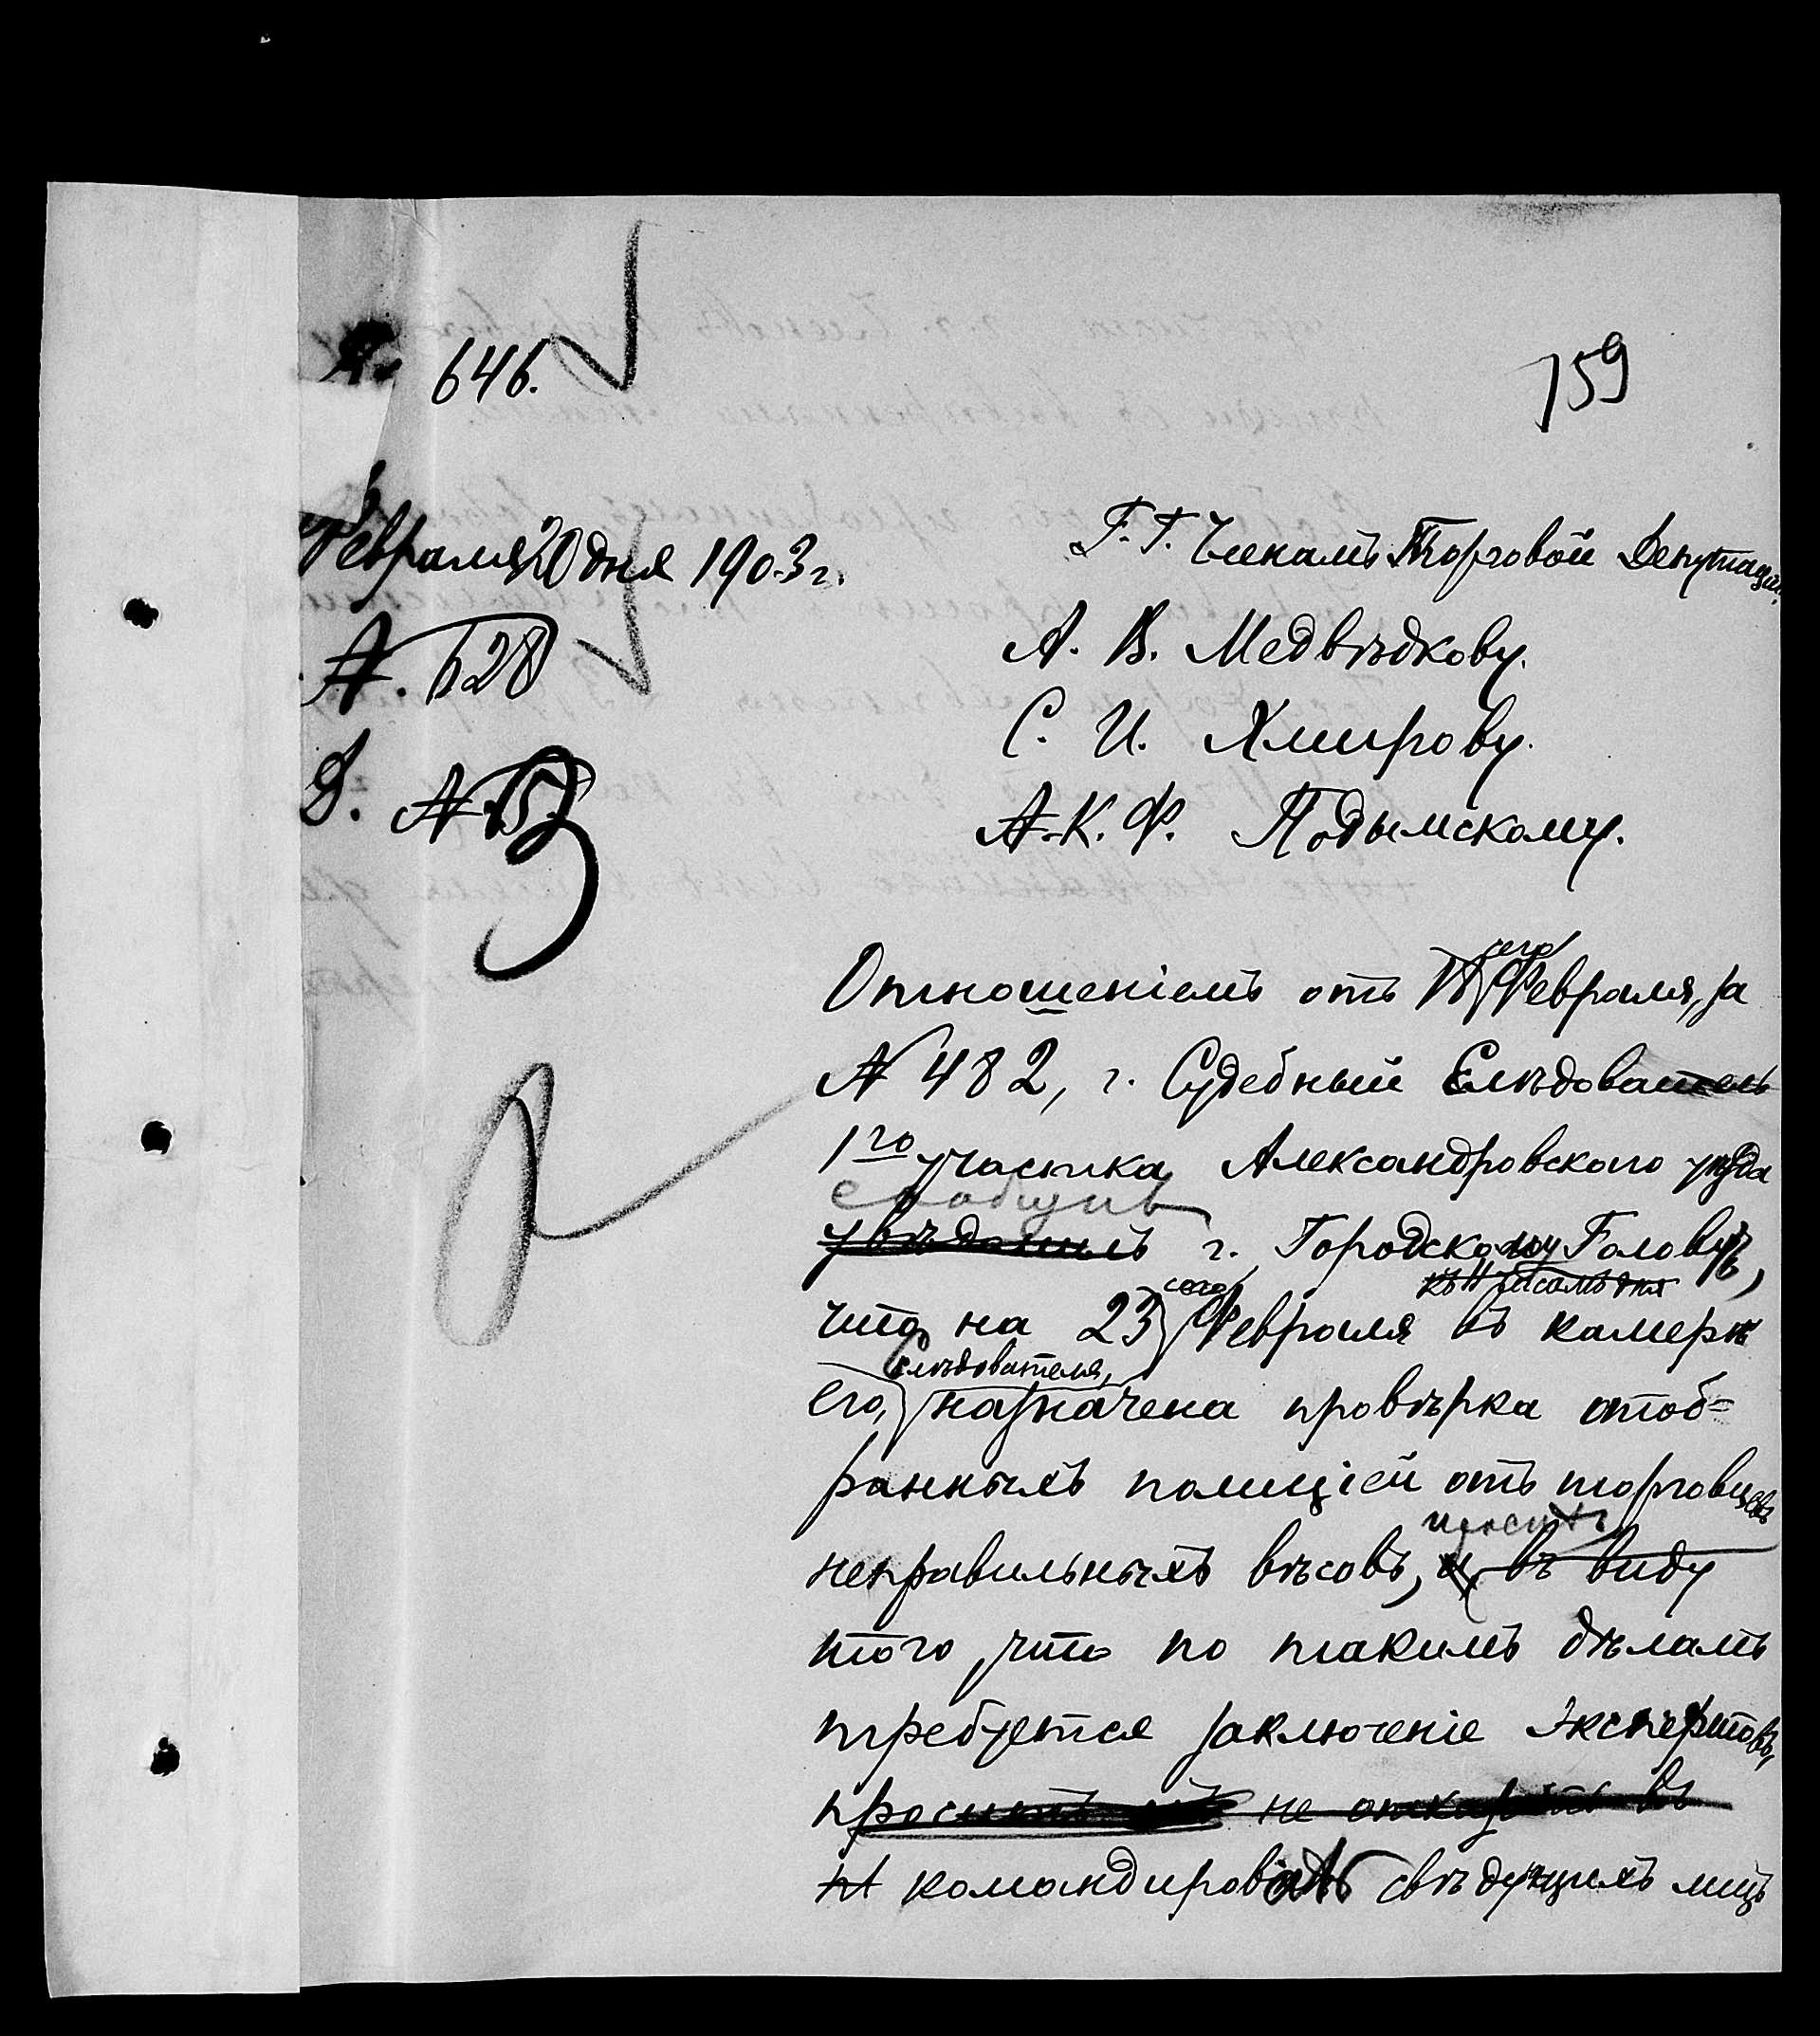 646.
159
Февраля 20 дня 1903 г.
№. 628
Г. Г. Членамъ Торговой Депутаціи.
А. В. Медвѣдкову.
С. И. Хмырову.
Д. №
А. К. Ф. Подымскому.
сего
Отношеніемъ отъ Февраля, за
№ 482, г. Судебный Слѣдователь
1го участка Александровскаго уѣзда
сообщивъ
увѣдомилъ г. Городскому Головѣ,
сего
что на 23 Февраля въ камерѣ
Слѣдователя,
его, назначена провѣрка отоб=
ранныхъ полиціей отъ торговцевъ
проситъ
неправильныхъ вѣсовъ, и, въ виду
того, что по такимъ дѣламъ
требуется заключеніе экспертовъ,
проситъ не отказать въ
командировать свѣдущихъ лицъ